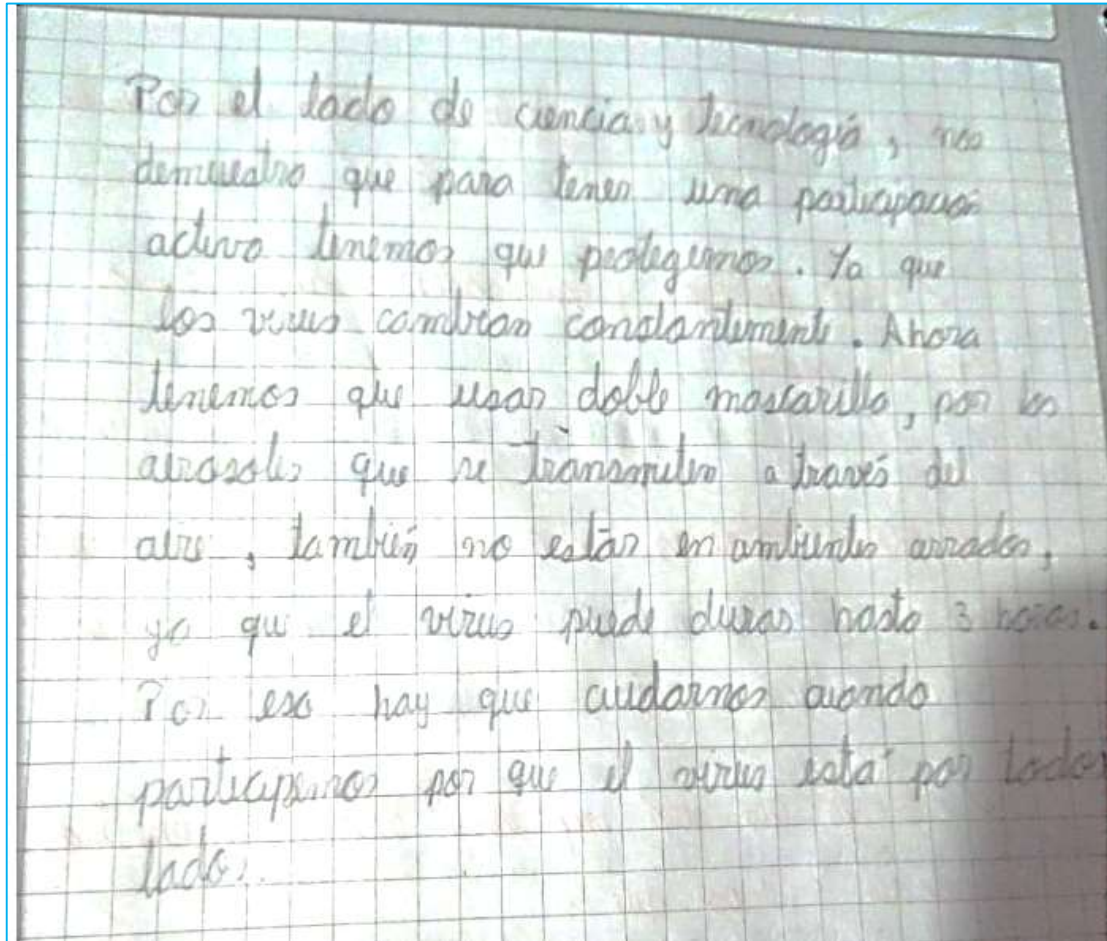 Por el lado de ciencia y tecnología, nos
demuestra que para tener una participación
activa tenemos que protegernos. Ya que
los virus cambian constantemente. Ahora
tenemos que usar doble mascarilla, por los
aerosoles que se transmiten a través del
aire, también no estar en ambientes cerrados,
ya que el virus puede durar hasta 3 horas.
Por eso hay que cuidarnos cuando
participemos por que el virus está por todos
lados.